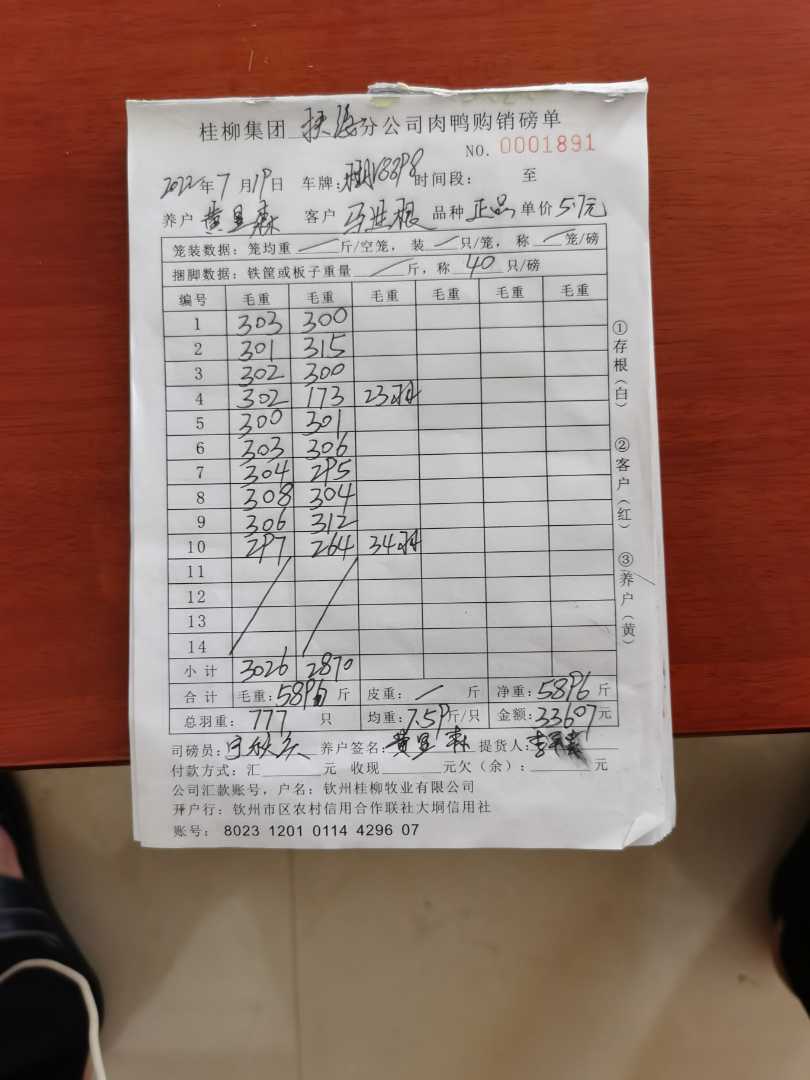 桂柳集团 扶海 分公司肉鸭购销磅单
NO. 0001891
2022年7月19日 车牌: 时间段: 至
养户 黄呈森 客户 马进根 品种 正品 单价 5.7元
笼装数据: 笼均重 / 斤/空笼, 装 / 只/笼, 称 / 笼/磅
捆脚数据: 铁筐或板子重量 / 斤, 称 40 只/磅
编号 毛重 毛重 毛重 毛重 毛重 毛重
1 303 300
2 301 315
3 302 300
4 302 173 23羽
5 300 301
6 303 306
7 304 295
8 308 304
9 306 312
10 297 264 34羽
11
12
13
14
小计 3026 2870
合计 毛重: 5896 斤 皮重: / 斤 净重: 5896 斤
总羽重: 777 只 均重: 7.59 斤/只 金额: 33607 元
司磅员: 养户签名: 黄呈森 提货人:
付款方式: 汇 元 收现 元欠(余): 元
公司汇款账号, 户名: 钦州桂柳牧业有限公司
开户行: 钦州市区农村信用合作联社大垌信用社
账号: 8023 1201 0114 4296 07
①存根(白)
②客户(红)
③养户(黄)